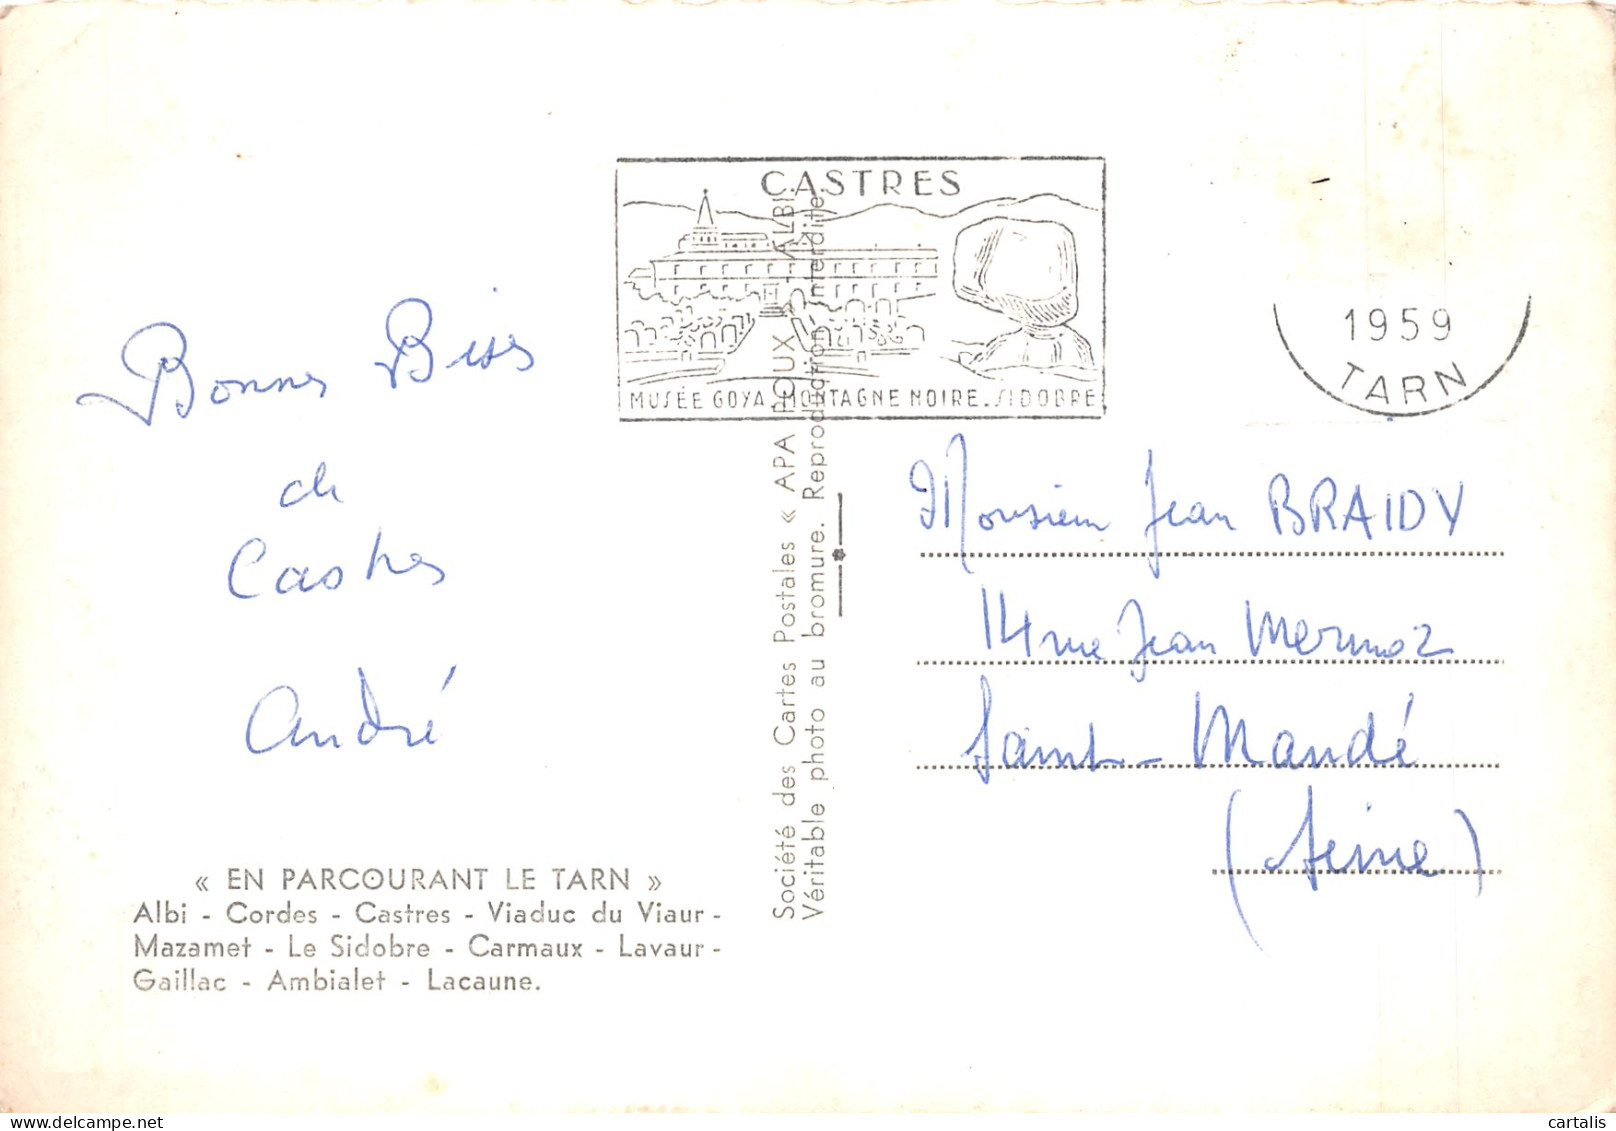 CASTRES
MUSÉE GOYA MONTAGNE NOIRE. SIDOBRE
1959
TARN
Bonnes Bises
de
Castres
André
« EN PARCOURANT LE TARN »
Albi - Cordes - Castres - Viaduc du Viaur -
Mazamet - Le Sidobre - Carmaux - Lavaur -
Gaillac - Ambialet - Lacaune.
Société des Cartes Postales « APA POUX » ALBI
Véritable photo au bromure. Reproduction interdite
Monsieur Jean BRAIDY
14 rue Jean Mermoz
Saint-Mandé
(Seine)
cartalis
www.delcampe.net